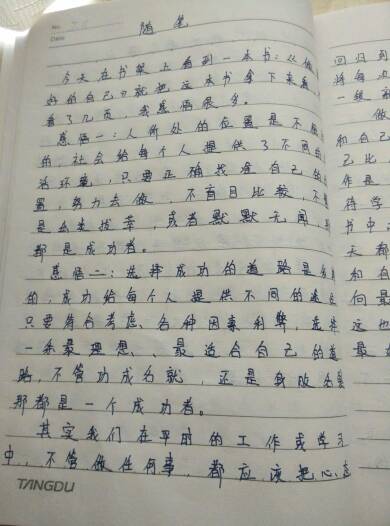 No.
Date
随笔
今天在书架上看到一本书：从做
好的自己，就把这本书拿下来看
看了几页，我感悟很多。
感悟一：人所处的位置是不同
的，社会给每个人提供了不同的
活环境，只要正确找准自己的
置，努力去做，不盲目比较，不
是出类拔萃，或者默默无闻，
都是成功者。
感悟二：选择成功的道路是
的，成功给每个人提供不同的
只要综合考虑、各种因素利弊，选择
一条最理想、最适合自己的道
路，不管功成名就，还是身败名
那都是一个成功者。
其实我们在平时的工作或学习
中，不管做任何事，都应该把心态
TANGDU
回归到
将每次
一级
做
和自己
己比
作是
待学
书中
天都
和自
何最
这也
最